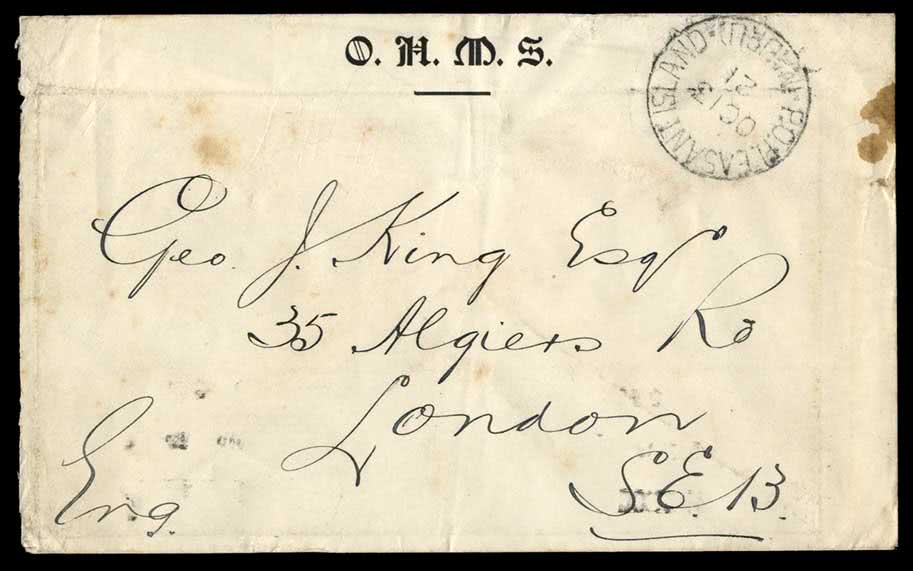 O. H. M. S.
P.O. PLEASANT ISLAND (NAURU)
OC
21
Geo. J. King Esqr
35 Algiers Rd
London
S.E. 13.
Eng.